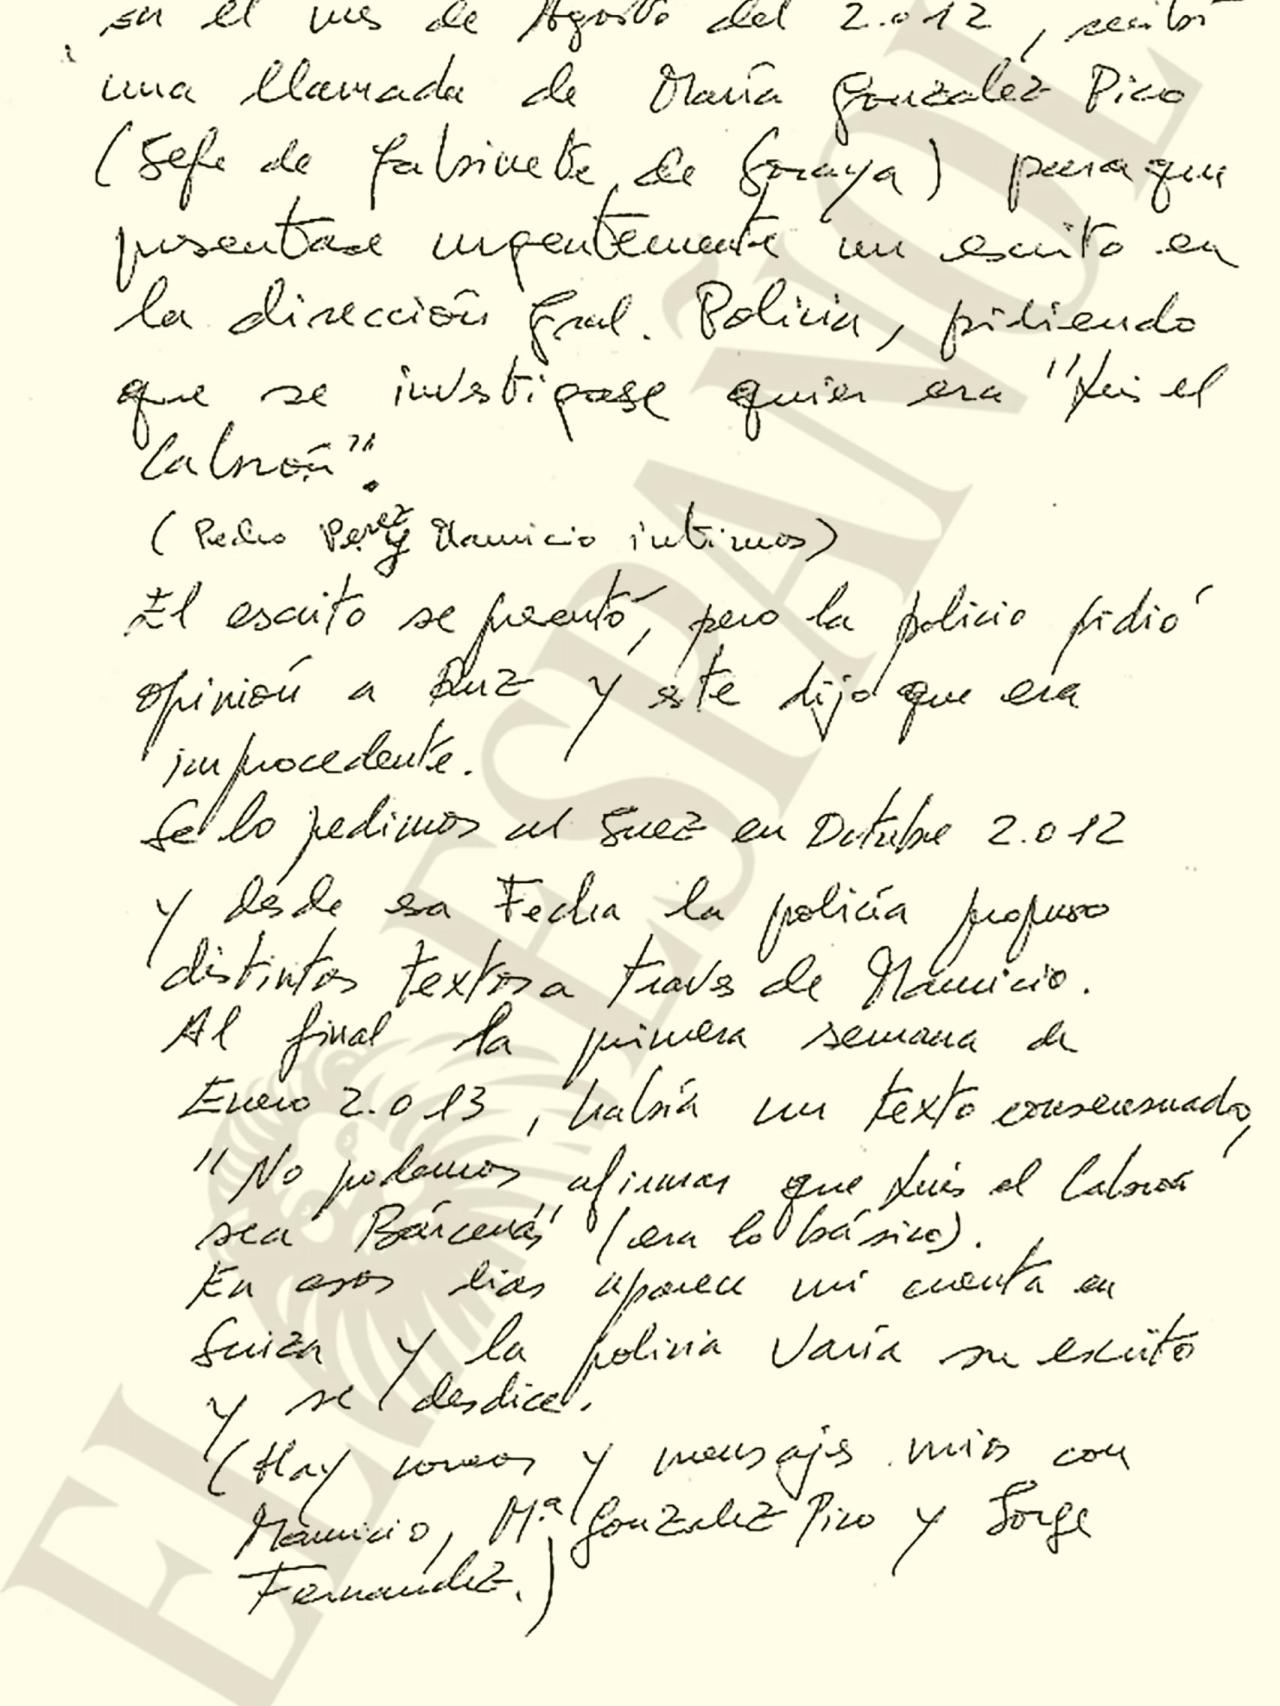 en el mes de Agosto del 2.012, recibí
una llamada de María González Pico
(Jefe de gabinete de Soraya) para que
presentase urgentemente un escrito en
la dirección Gral. Policia, pidiendo
que se investigase quien era "Luis el
Cabrón".
(Pedro Perez y Mauricio intimos)
El escrito se presentó, pero la policia pidió
opinión a Ruz y este dijo que era
improcedente.
Se lo pedimos al Juez en Octubre 2.012
y desde esa Fecha la policía propuso
distintos textos a traves de Mauricio.
Al final la primera semana de
Enero 2.013, había un texto consensuado,
"No podemos afirmar que Luis el Cabrón
sea Bárcenas" (era lo básico).
En esos dias aparece mi cuenta en
Suiza y la policia varía su escrito
y se desdice.
(Hay correos y mensajes mios con
Mauricio, Mª González Pico y Jorge
Fernandez.)
EL ESPAÑOL